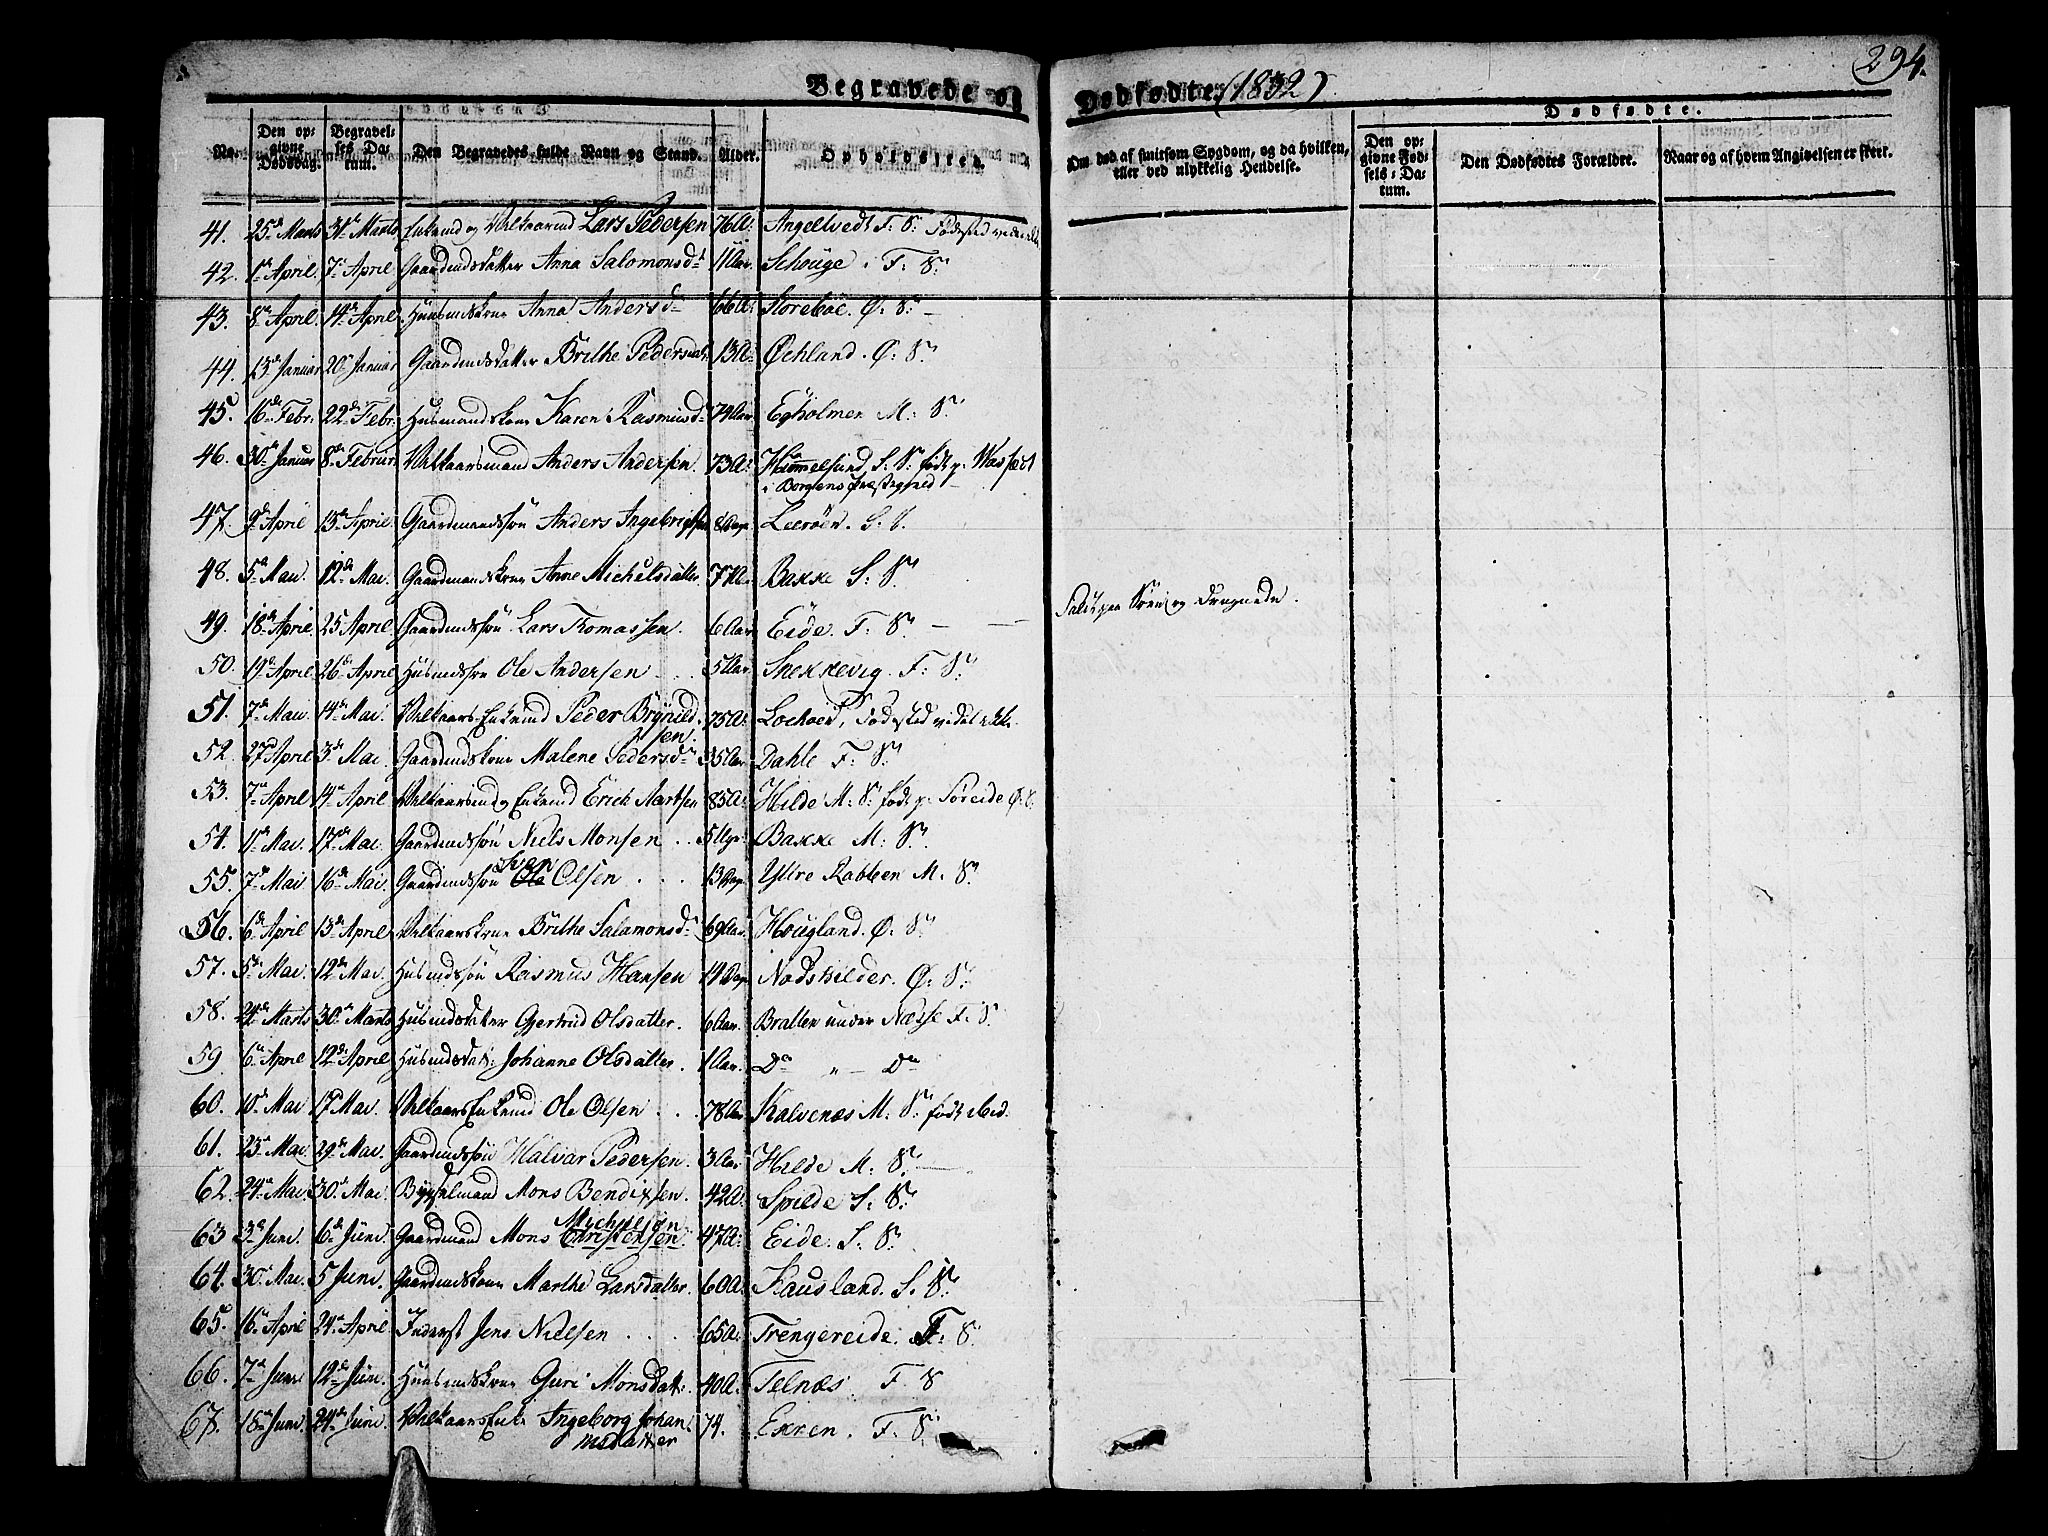 294.
Begravede og Dødfødte (1832)
Dødfødte.
No. Den opgivne Dødsdag. Begravelses Datum. Den Begravedes fulde Navn og Stand. Alder. Opholdssted. Om død af smitsom Sygdom, og da hvilken, eller ved ulykkelig Hendelse. Den opgivne Fødsels-Datum. Den Dødfødtes Forældre. Naar og af hvem Angivelsen er skeet.
41. 25de Marts 31te Marts Enkemd og Vilkaarmd Lars Pedersen 76 A: Angeltvedt F: S: Fødested vides ikke
42. 1te April. 7de April Gaardmdsdatter Anna Salomonsdr 11 Aar Schouge i F: S:
43. 8de April. 14de April Huusmdskone Anna Andersdr 66 A: Storebøe. Ø: S:
44. 13de Januar 20de Januar Gaardmdsdatter Brithe Pedersdatr 13 A: Øchland. Ø: S:
45. 16de Febr: 22de Febr: Husmandskone Karen Rasmusdr 74 Aar Egholmen M: S:
46. 30te Januar 8de Februar Vilkaarsmand Anders Andersen 73 A: Himmelsund S: S: født p:
i Borgens Præstegield
47. 9de April 13de April Gaardmandssøn Anders Ingebrigtsen 8 Dage Leerøen. S: S.
48. 5te Mai. 12de Mai. Gaardmandskone Anne Michelsdatter. 77 A: Bakke S: S:
49. 18de April. 25 April. Gaardmdssøn Lars Thomassen. 6 Aar Eide. F: S. Faldt paa Søen og druknede.
50. 19de April. 26de April Husmdssøn Ole Andersen 5 Aar Snekkevig. F: S:
51. 7de Mai 14de Mai Vilkaars Enkemd Peder Brynild
sen. 75 A: Fødested vides ikke.
52. 27de April 3de Mai Gaardmdskone Malene Pedersdr 35 Aar Dahle F: S:
53. 7de April 14de April Vilkaarsmd og Enkemd Erick Aartsen 85 A: Hilde M: S: født p: Søreide Ø: S:
54. 11te Mai. 17de Mai. Gaardmdssøn Niels Monsen 5 Uger Bakke M: S.
55. 7de Mai 16de Mai. Gaardmdssøn Sven Olsen 13 Dage Yttre Rabben M: S.
56. 6de April 13de April Vilkaarskone Brithe Salamonsdr 69 Aar Hougland. Ø: S:
57. 5te Mai 12de Mai. Husmdssøn Rasmus Hansen 14 Dage Nodskilder. Ø: S.
58. 24de Marts 30te Marts Husmdsdatter Gjertrud Olsdatter. 6 Aar. Bratten under Nædse F: S.
59. 6te April 12de April Husmdsdat: Johanne Olsdatter. 1 Aar. Do " Do
60. 10de Mai 17de Mai. Vilkaars Enkemd Ole Olsen 78 Aar Kalvenæs M: S: født ibid.
61. 23de Mai. 29de Mai. Gaardmdssøn Halvar Pedersen. 3 Aar Hilde M: S.
62. 24de Mai. 30te Mai Bygselmand Mons Bendixsen. 42 A: Spilde S: S:
63 3de Juni. 6te Juni. Gaardmand Mons Michelsen Christensen. 47 A: Eide. S: S:
64. 30te Mai. 5 Juni. Gaardmdskone Marthe Larsdatter. 60 A: Hausland. S. S:
65. 16de April 24de April Inderst Jens Nielsen 65 A: Trengereide. F: S:
66. 7de Juni 12de Juni. Huusmdskone Guri Monsdatr: 40 A: Telnæs. F. S
67. 18de Juni. 24de Juni Vilkaars Enke Ingeborg Johan
nesdatter 74. Exren. F: S: